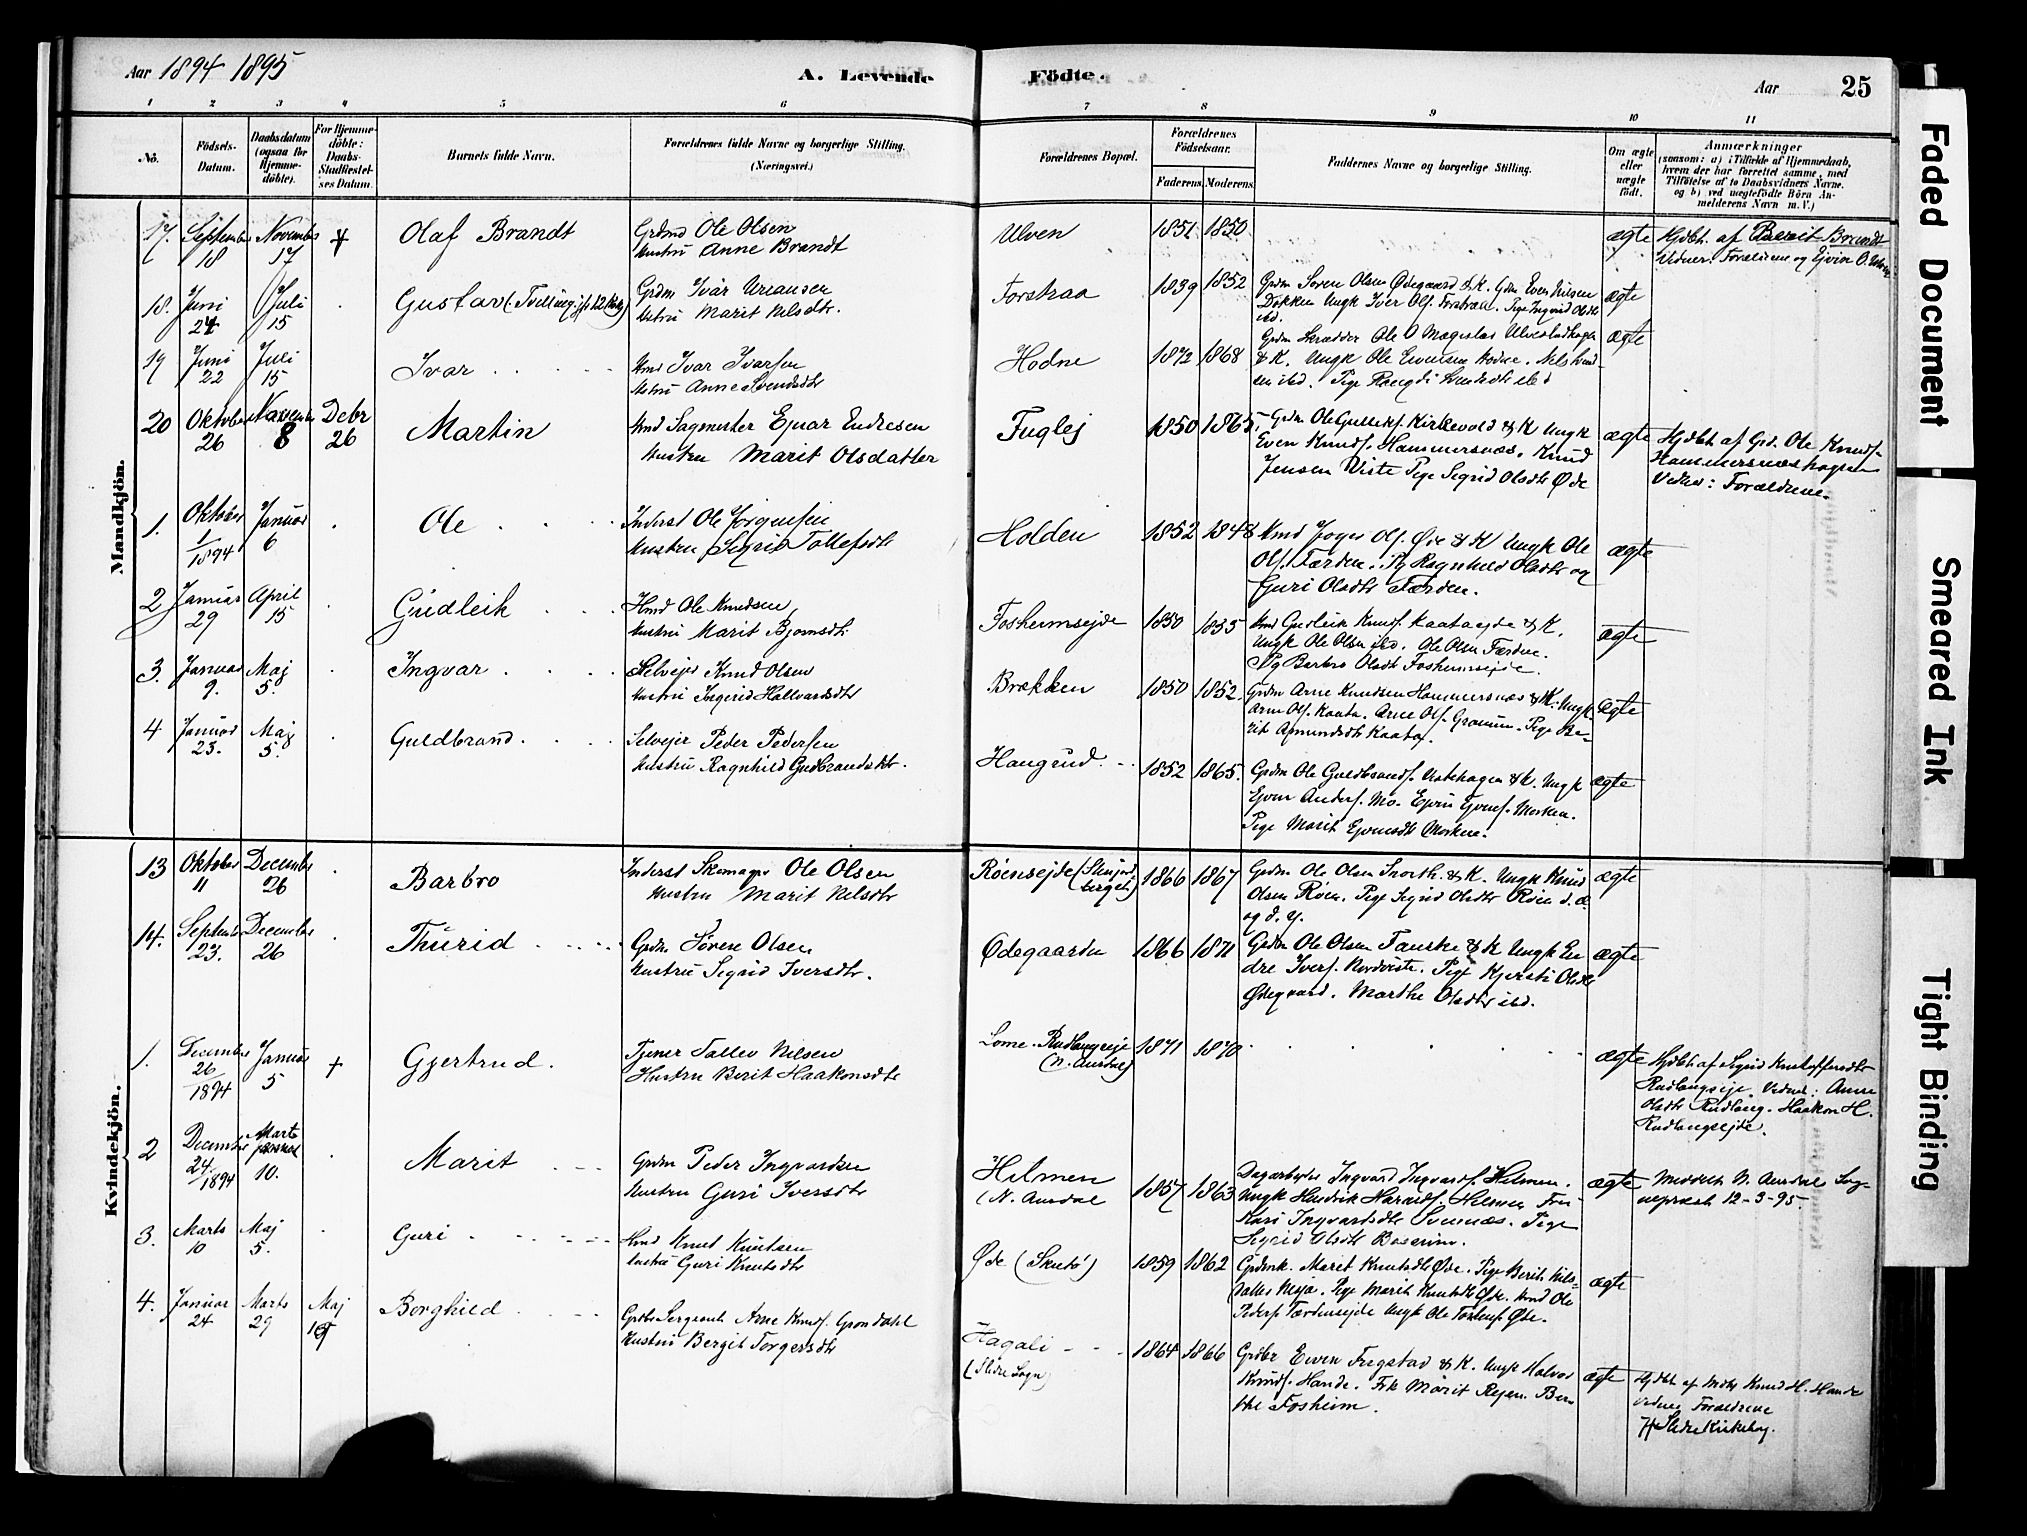 Aar 1894 1895
A. Levende Födte.
Aar 25
1 2 3 4 5 6 7 8 9 10 11
No.
Födsels-
Datum.
Daabsdatum
(ogsaa for
Hjemme-
döbte).
For Hjemme-
döbte:
Daabs-
Stadfæstel-
ses Datum.
Barnets fulde Navn.
Forældrenes fulde Navne og borgerlige Stilling.
(Næringsvei.)
Forældrenes Bopæl.
Forældrenes
Födselsaar.
Faderens. Moderens.
Faddernes Navne og borgerlige Stilling.
Om ægte
eller
uægte
födt.
Anmærkninger
(saasom: a) i Tilfælde af Hjemmedaab,
hvem der har forrettet samme, med
Tilföielse af to Daabsvidners Navne,
og b) ved uægtefödte Börn An-
melderens Navn m. V.)
Mandkjön.
17. September 18 November 17 Olaf Brandt
Grdmd Ole Olsen
Hustru Anne Brandt
Ulven 1851 1850 ægte
Hjdbt. af Berit Brandt
Vidner: Forældrene og
18. Juni 24 Juli 15 Gustav (Tvilling
Grdm Ivar
Hustru Marit Nilsdtr.
Forstraa 1839 1852
Grdm Søren Olsen Ødegaard & K. Gdm Even Nilsen
Døkken Ungk Iver Ols. Forstraa. Pige Ingrid Olsdtr
ibd.
ægte
19 Juni 22 Juli 15 Ivar
Hmd Ivar Ivarsen
Hustru Anne Svendsdtr
Hodne 1872 1868
Grdm Skrædder Ole O
& K. Ungk Ole Evensen Hodne.
ægte
20 Oktober 26 November 8 Debr 26 Martin
Hmd Sagmester Ejnar Endresen
Hustru Marit Olsdatter
Fuglej 1850 1865
Grdm Ole Gulliks. Kirkevold & K Ungk
Even Knuds. Hammersnæs. Knud
Jensen Viste Pige Sigrid Olsdtr Øde
ægte
Hjdbt af Grd. Ole Knuds.
Hammersnæshagen
Vidner: Forældrene.
1. Oktober 1/1894 Januar 6 Ole
Inderst Ole Jørgensen
Hustru Sigrid Tollefsdtr
Holden 1852 1848
Hmd Ols. Øde & K Ungk Ole
Ols. Færden. Pg Ragnhild Olsdtr og
Guri Olsdtr Færden.
ægte
2 Januar 29 April 15 Gudleik
Hmd Ole Knudsen
Hustru Marit Bjørnsdtr
Fosheimsejde 1850 1855
Hmd Gudleik Knuds. Kaataejde & K.
Ungk Ole Olsen ibd. Ole Olsen Færden.
Pg Barbro Olsdtr Fosheimsejde.
ægte
3. Januar 9. Maj 5. Ingvar
Selvejer Knud Olsen
Hustru Ingerid Hallvardsdtr
Brækken 1850 1852
Grdm Arne Knudsen Hammersnæs & K. Ungk.
Arne Ols. Kaata. Arne Ols. Pige Be-
rit Amundsdtr Kaata.
ægte
4 Januar 23. Maj 5. Guldbrand
Selvejer Peder Pedersen
Hustru Ragnhild Gudbrandsdtr.
Haugrud. 1852 1865.
Grdm Ole Guldbrands. & K. Ungk
Ejvin Anders. Mo. Ejvin Ejvins. Morken.
Pige Marit Ejvinsdtr Morken.
ægte
Kvindekjön.
13 Oktober 11 December 26 Barbro
Inderst Skomager Ole Olsen
Hustru Marit Nilsdtr
Røensejde 1866 1867
Grdm Ole Olsen & K. Ungk Knud
Olsen Røen. Pige Sigrid Olsdtr Røen d. æ.
og d. y.
ægte
14. September 23. December 26 Thurid
Grdm Søren Olsen
Hustru Sigrid Iversdtr.
Ødegaarden 1866 1871
Grdm Ole Olsen Fauske & K Ungk En-
dre Ivers. Nordviste. Pige Kjersti Olsdtr
Ødegaard. Marthe Olsdtr ibd.
ægte
1. December 26/1894 Januar 5 Gjertrud.
Tjener Tollev Nilsen
Hustru Berit Haakonsdtr
Lome. Rudlangseje
(N. Aurdal) 1871 1870 ægte
Hjdbt af Sigrid Kristoffersdtr
Rudlangseje. Vidner: Anne
Olsdtr Rudlang. Haakon H.
Rudlangsejde.
2 December 24/1894 Marts 10. Marit
Grdm Peder Ingvardsen
Hustru Guri Iversdtr
Hilmen
(N. Aurdal 1857 1863
Dagarbejder Ingvard Ingvards. Hilmen.
Ungk Hendrik Haralds. Hilmen
Kari Ingvardsdtr Svennæs. Pige
Sigrid Olsdtr
ægte
Meddelt N. Aurdal Sog-
nepræst 12-3-95.
3. Marts 10 Maj 5. Guri
Hmd Knut Knutsen
Hustru Guri Knutsdtr
Øde (Skutø) 1859 1862
Grdmk. Marit Knutsdtr Øde. Pige Berit Nils-
datter Pige Marit Knutsdtr Øde. Hmd Ole
Peders. Færdensejde Ungk Ole Øde.
ægte
4. Januar 24 Marts 29 Maj 19 Borghild
Grdbr Sergeant Arne Knuds. Grøndahl
Hustru Bergit Torgersdtr
Hagali
(Slidre Sogn) 1864 1866
Grdbr Even Fugstad & K. Ungk Halvor
Knuds. Hande. Frk Marit
Fosheim.
ægte
Hjdbt af Knud H. Hande
Vidner Forældrene
Slidre Kirkebog.
Faded Document
Smeared Ink
Tight Binding